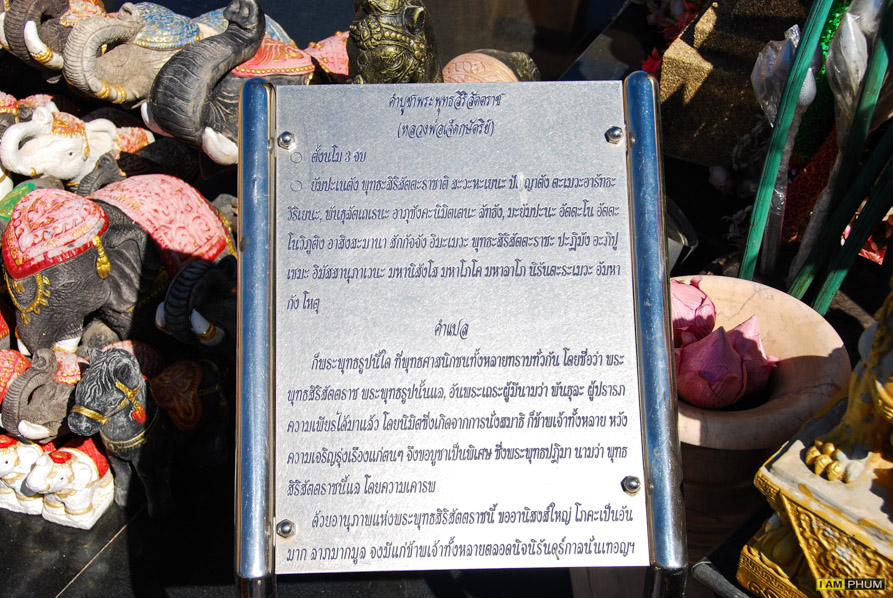 คำบูชาพระพุทธสิริสัตตราช
(หลวงพ่อเจ็ดกษัตริย์)
ตั้งนโม 3 จบ
ยัมปะเนตัง พุทธะสิริสัตตะราชาติ สะวะหะเยนะ ปัญญาตัง ตะเมวะอารัทธะ
วิริเยนะ, พันธุลัตเถเรนะ อาภุชังคะนิมิตเตนะ ลัทธัง, มะยัมปะนะ อัตตะโน อัตตะ
โนวิภูติง อาสิงสะมานา สักกัจจัง อิมะเมวะ พุทธะสิริสัตตะราชะ ปะฏิมัง อะภิปู
เชมะ อิมัสสานุภาเวนะ มหานิสังโส มหาโภโค มหาลาโภ นิรันตะระเมวะ อัมหา
กัง โหตุ
คำแปล
ก็พระพุทธรูปนี้ใด ที่พุทธศาสนิกชนทั้งหลายทราบทั่วกัน โดยชื่อว่า พระ
พุทธสิริสัตตราช พระพุทธรูปนั้นแล, อันพระเถระผู้มีนามว่า พันธุละ ผู้ปรารภ
ความเพียรได้มาแล้ว โดยนิมิตซึ่งเกิดจากการนั่งสมาธิ ก็ข้าพเจ้าทั้งหลาย หวัง
ความเจริญรุ่งเรืองแก่ตนๆ จึงขอบูชาเป็นพิเศษ ซึ่งพระพุทธปฏิมา นามว่า พุทธ
สิริสัตตราชนี้แล โดยความเคารพ
ด้วยอานุภาพแห่งพระพุทธสิริสัตตราชนี้ ขออานิสงส์ใหญ่ โภคะเป็นอัน
มาก ลาภมากมูล จงมีแก่ข้าพเจ้าทั้งหลายตลอดนิจนิรันดร์กาลนั่นเทอญฯ
I AM PHUM